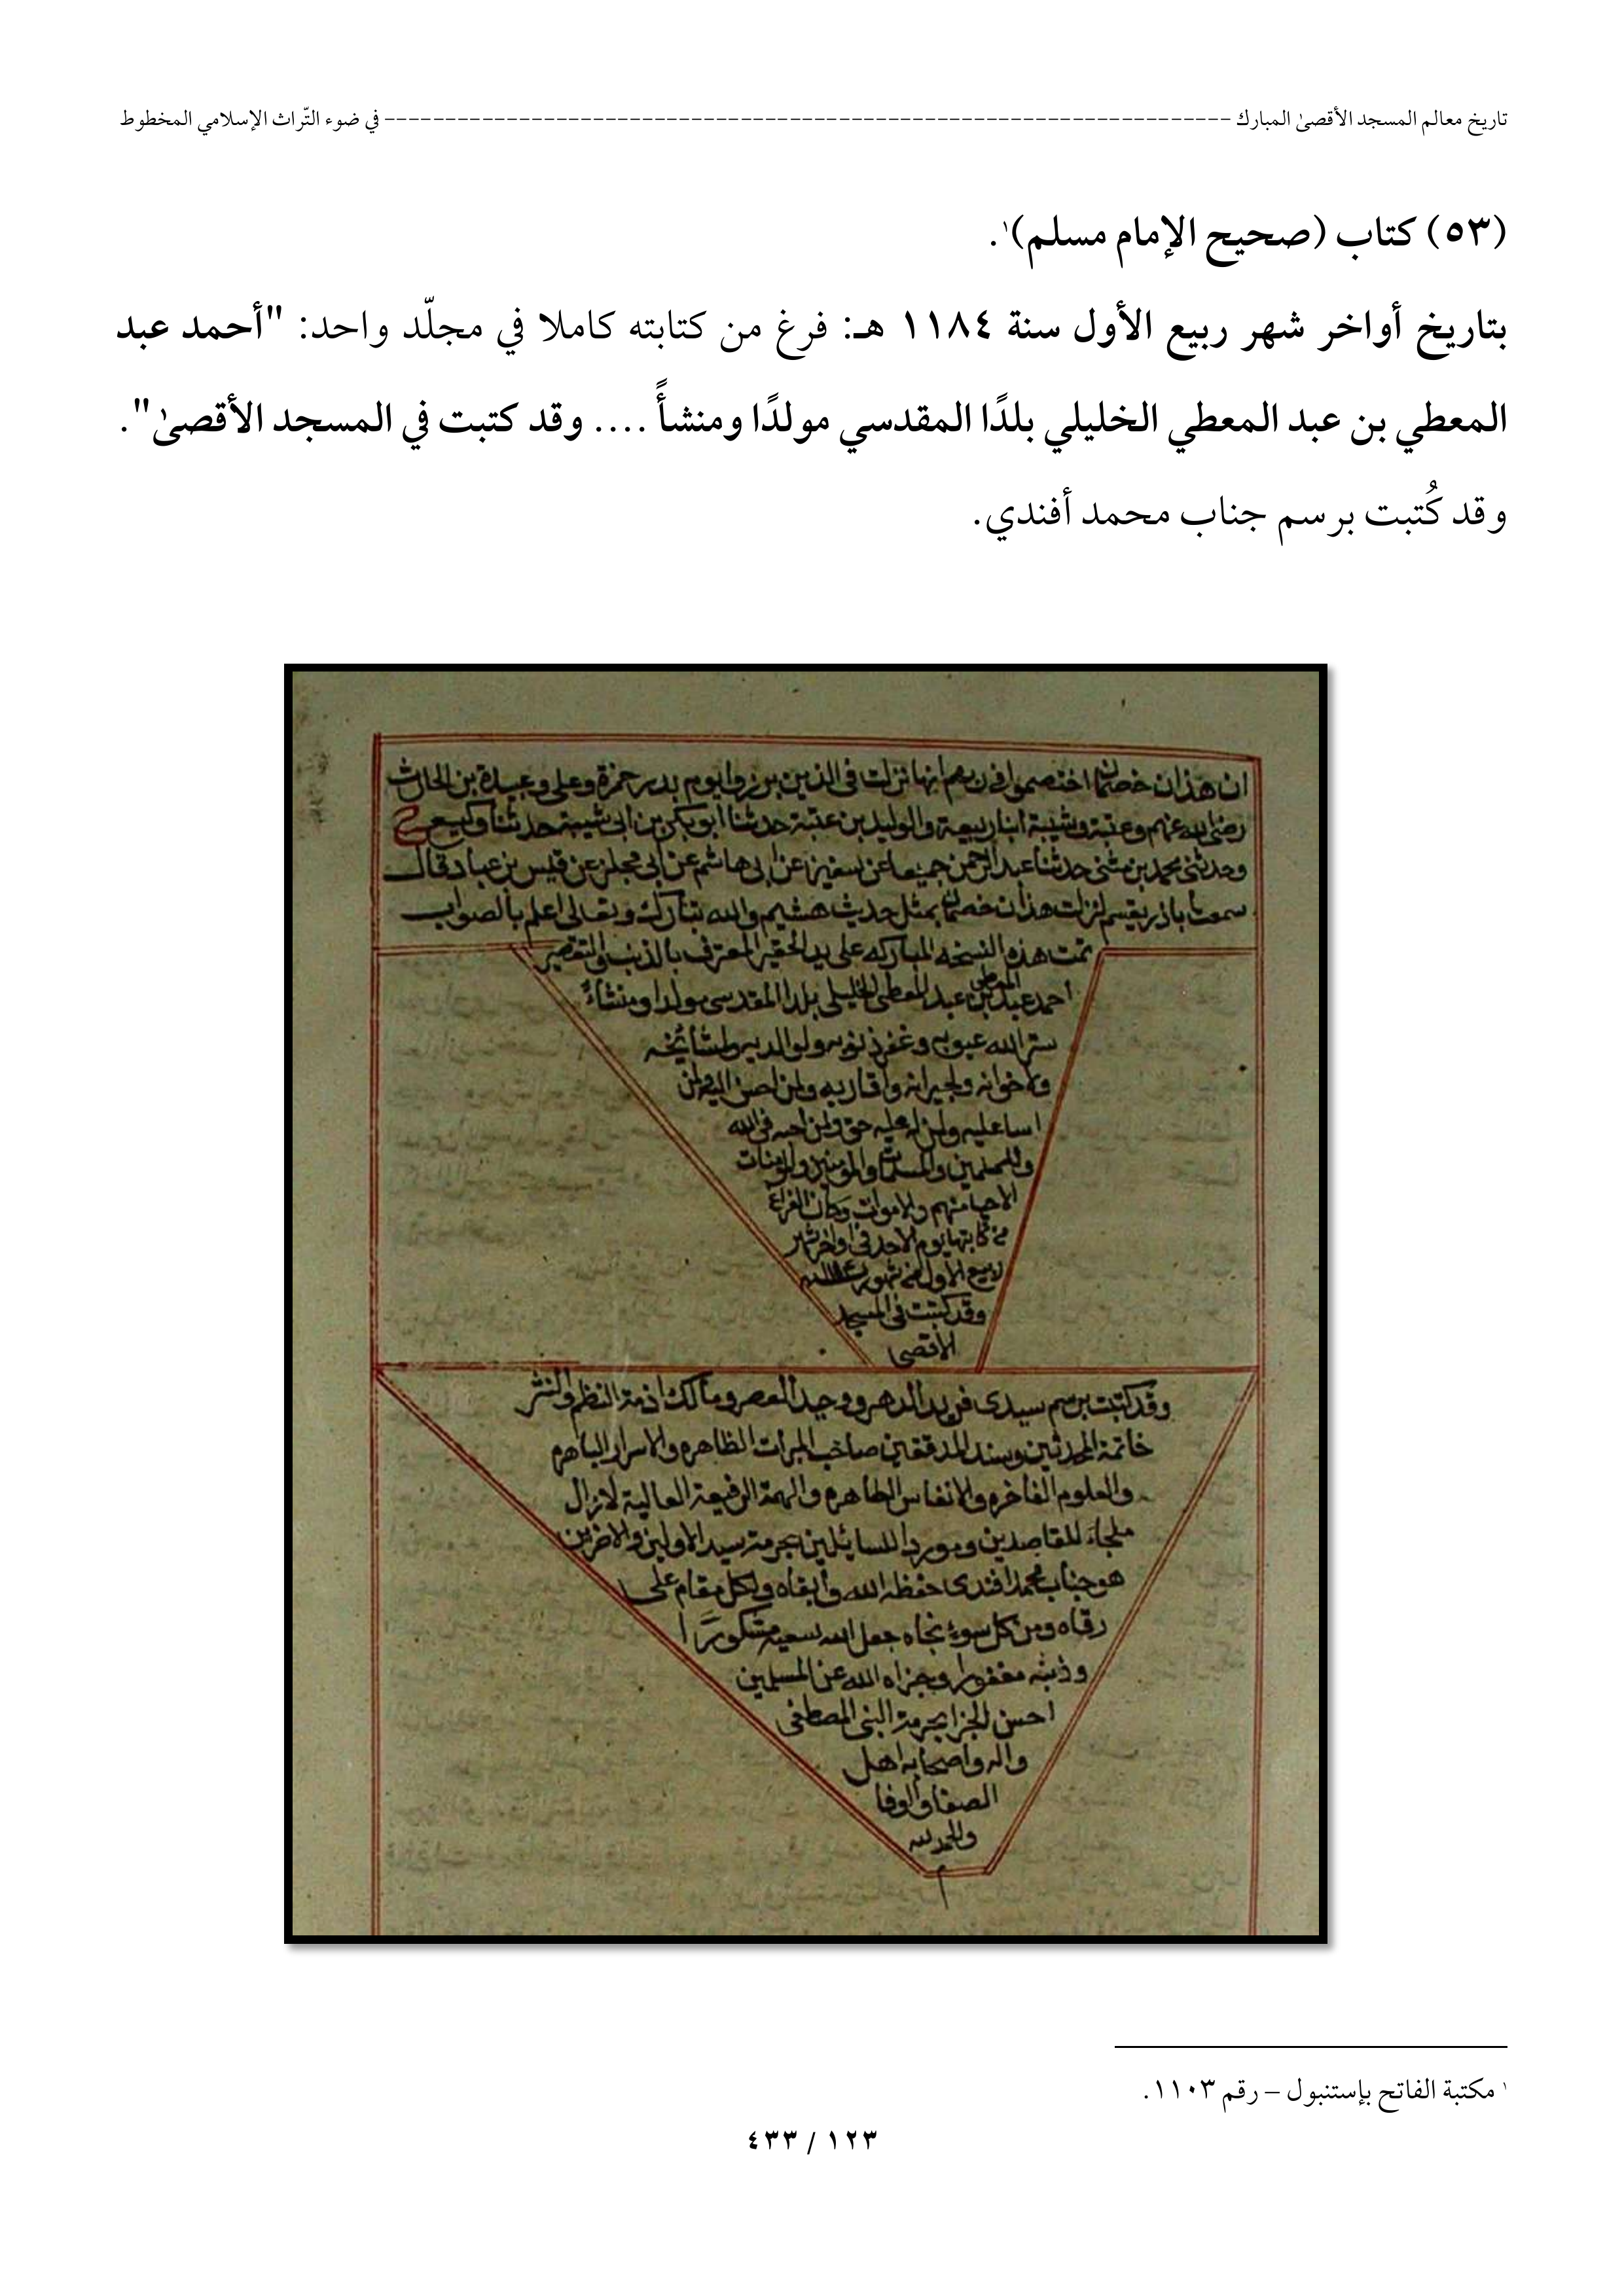 تاريخ معالم المسجد الأقصىٰ المبارك ---------------------------------------------------------------------- في ضوء التّراث الإسلامي المخطوط
(٥٣) كتاب (صحيح الإمام مسلم)١.
بتاريخ أواخر شهر ربيع الأول سنة ١١٨٤ هـ: فرغ من كتابته كاملا في مجلّد واحد: "أحمد عبد
المعطي بن عبد المعطي الخليلي بلدًا المقدسي مولدًا ومنشأً .... وقد كتبت في المسجد الأقصىٰ".
وقد كُتبت برسم جناب محمد أفندي.
ان هذان خصمان اختصموا في ربهم انها نزلت في الذين برزوا يوم بدر حمزة وعلي وعبيدة بن الحارث
رضي الله عنهم وعتبة وشيبة ابنا ربيعة والوليد بن عتبة حدثنا ابو بكر بن ابي شيبة حدثنا وكيع ح
وحدثني محمد بن مثنى حدثنا عبد الرحمن جميعا عن سفين عن ابي هاشم عن ابي مجلز عن قيس بن عباد قال
سمعت اباذر يقسم لنزلت هذان خصمان بمثل حديث هشيم والله تبارك وتعالى اعلم بالصواب
تمت هذه النسخه المباركه على يد الحقير المعترف بالذنب والتقصير
احمد عبد المعطي بن عبد المعطي الخليلي بلدا المقدسي مولدا ومنشاءً
ستر الله عيوبه وغفر ذنوبه ولوالديه ولمشايخه
ولاخوانه ولجيرانه واقاربه ولمن احسن اليه ولمن
اسا عليه ولمن له عليه حق ولمن احبه في الله
وللمسلمين والمسلمات والمومنين والمومنات
الاحيا منهم والاموات وكان الفراغ
من كتابتها يوم الاحد في اواخر شهر
ربيع الاول من شهور سنة ١١٨٤
وقد كتبت في المسجد
الاقصى
وقد كتبت برسم سيدي فريد الدهر ووحيد العصر ومالك اذمة النظم والنثر
خاتمة المحدثين وسند المدققين صاحب المبرات الظاهره والاسرار الباهره
والعلوم الفاخره والانفاس الطاهره والهمة الرفيعة العالية لازال
ملجاء للقاصدين وموردا للسايلين بحرمة سيد الاولين والاخرين
هو جناب محمد افندى حفظه الله وابقاه ولكل مقام على
رقاه ومن كل سوء نجاه جعل الله سعيه مشكورًا
وذنبه مغفورا وجزاه الله عن المسلمين
احسن الجزا بحرمة النبي المصطفى
واله واصحابه اهل
الصفا والوفا
والحمد لله
م
١ مكتبة الفاتح بإستنبول – رقم ١١٠٣.
١٢٣ / ٤٣٣